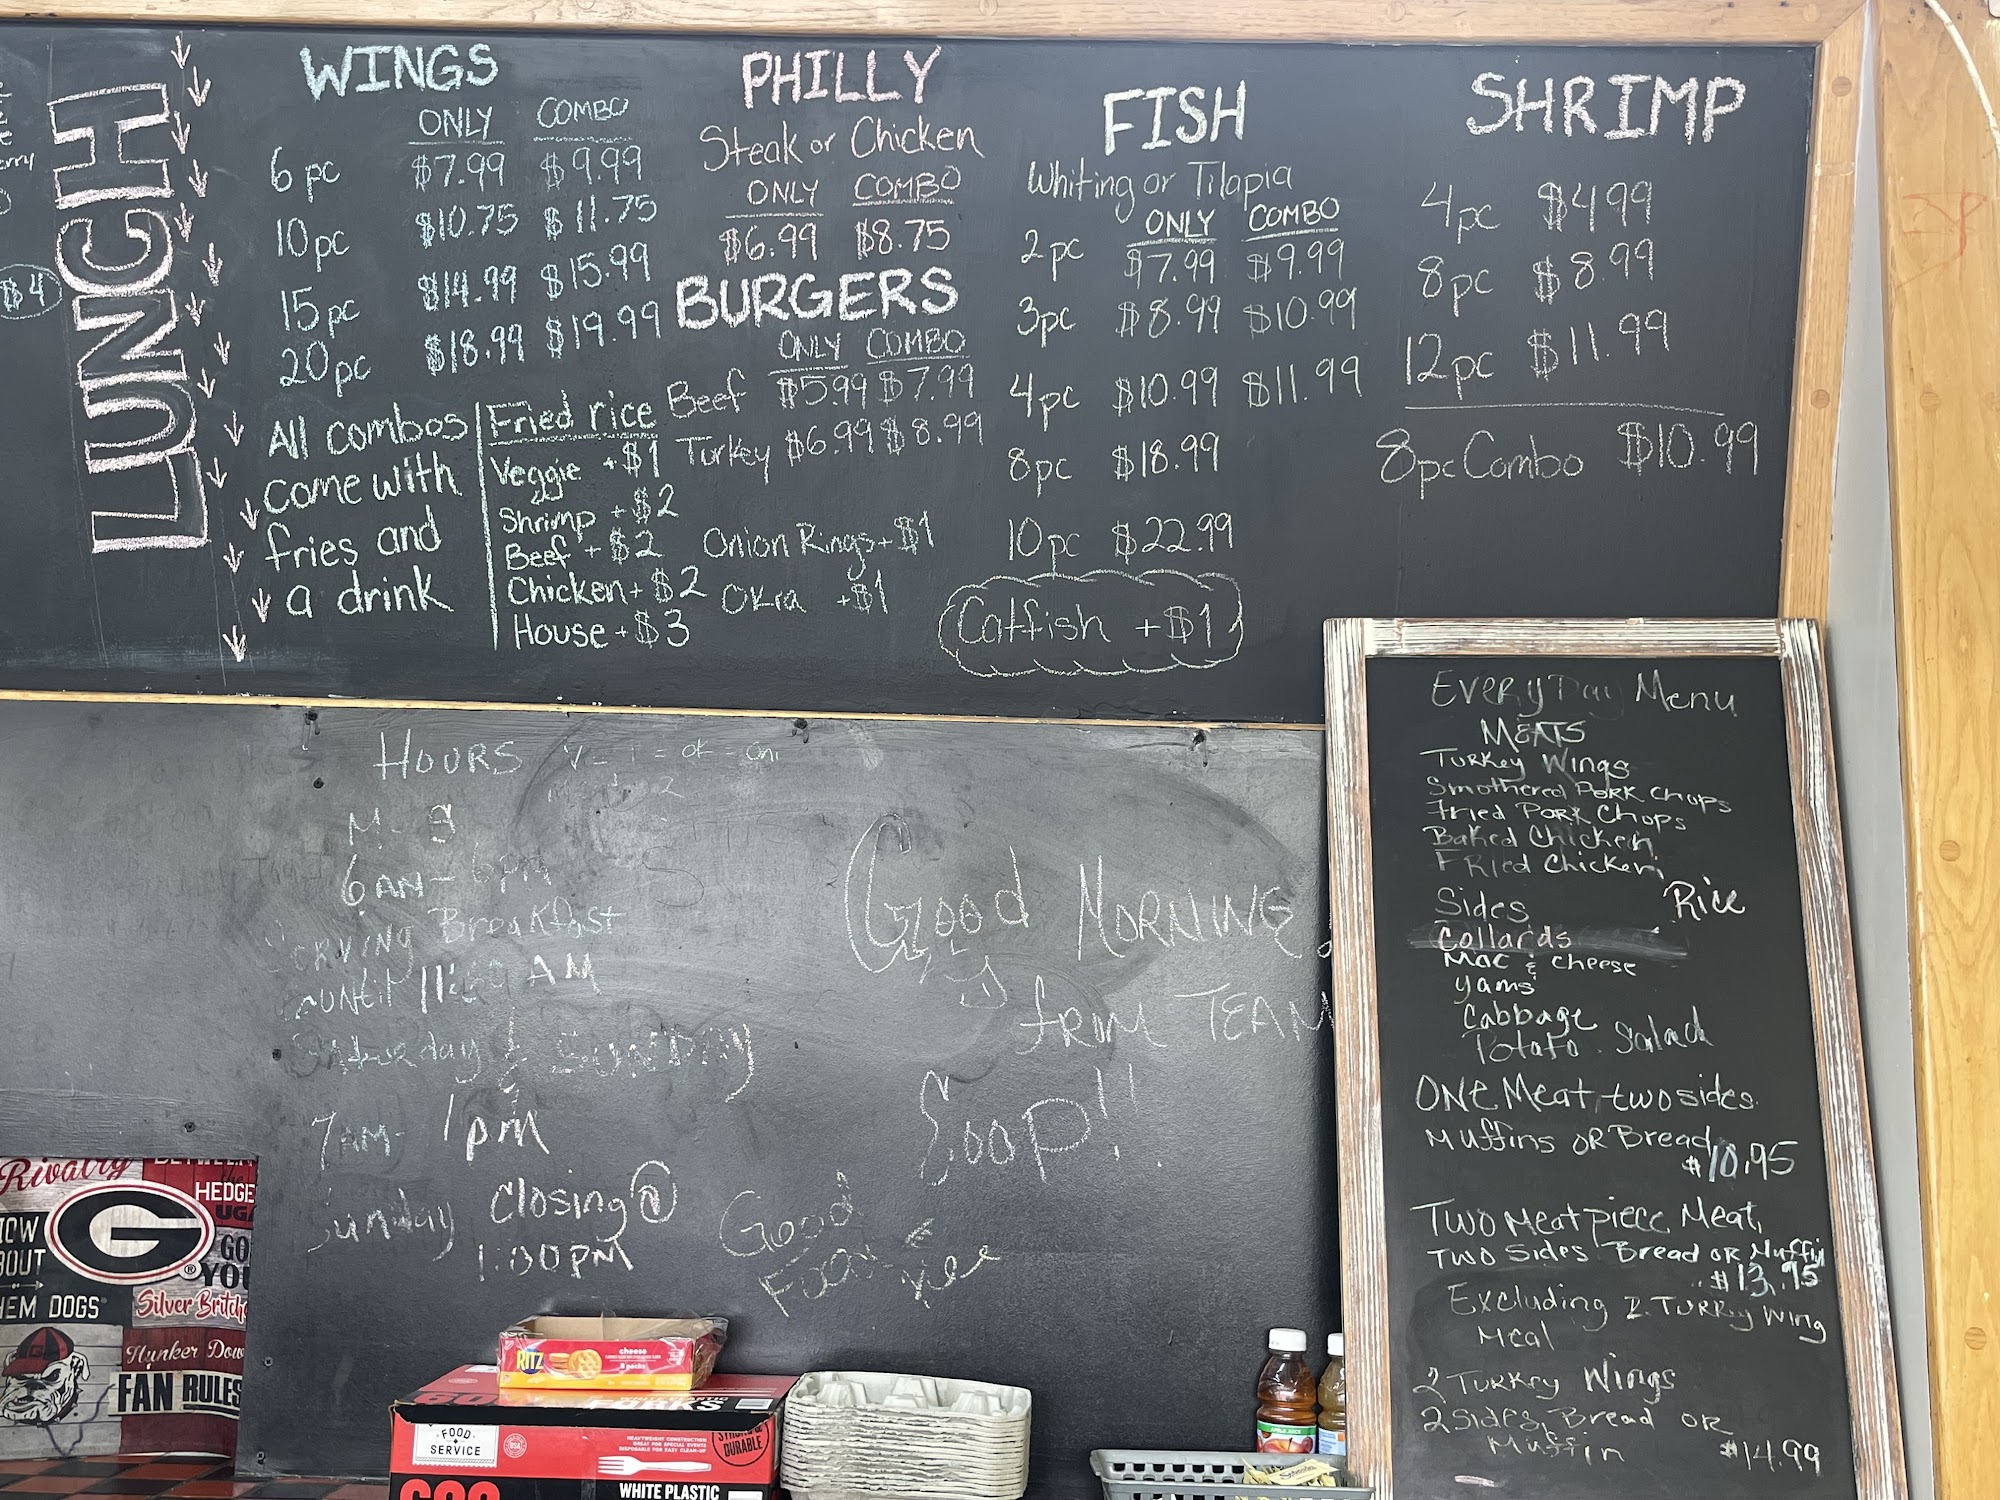 $4
LUNCH
WINGS
ONLY COMBO
6pc $7.99 $9.99
10pc $10.75 $11.75
15pc $14.99 $15.99
20pc $18.99 $19.99
All combos
come with
fries and
a drink
Fried rice
Veggie +$1
Shrimp +$2
Beef +$2
Chicken+$2
House+$3
PHILLY
Steak or Chicken
ONLY COMBO
$6.99 $8.75
BURGERS
ONLY COMBO
Beef $5.99 $7.99
Turkey $6.99 $8.99
Onion Rings+$1
Okra +$1
FISH
Whiting or Tilapia
ONLY COMBO
2pc $7.99 $9.99
3pc $8.99 $10.99
4pc $10.99 $11.99
8pc $18.99
10pc $22.99
Catfish +$1
SHRIMP
4pc $4.99
8pc $8.99
12pc $11.99
8pc Combo $10.99
HOURS
M-S
6AM-6PM
Serving Breakfast
until AM
Saturday & SUNDAY
7AM- 1pm
Sunday closing @
1:00PM
Good MORNING
from TEAM
SooP!!
Good
Food
EveryDay Menu
MEATS
Turkey Wings
Smothered Pork chops
Fried Pork Chops
Baked Chicken
FRied Chicken
Sides Rice
Collards
Mac & cheese
yams
Cabbage
Potato Salad
ONE Meat, two sides
Muffins OR Bread
$10.95
Two Meat piece Meat,
Two Sides Bread OR Muffin
$13.95
Excluding 2 Turkey Wing
Meal
2 Turkey Wings
2 sides, Bread OR
Muffin $14.99
Rivalry
HEDGE
UGA
HOW
BOUT
THEM DOGS
GO
YOU
Silver Britch
Hunker Dow
FAN RULES
G
RITZ
cheese
8 packs
FOOD
SERVICE
HEAVYWEIGHT CONSTRUCTION
GREAT FOR SPECIAL EVENTS
DISPOSABLE FOR EASY CLEAN-UP
DURABLE
600
WHITE PLASTIC